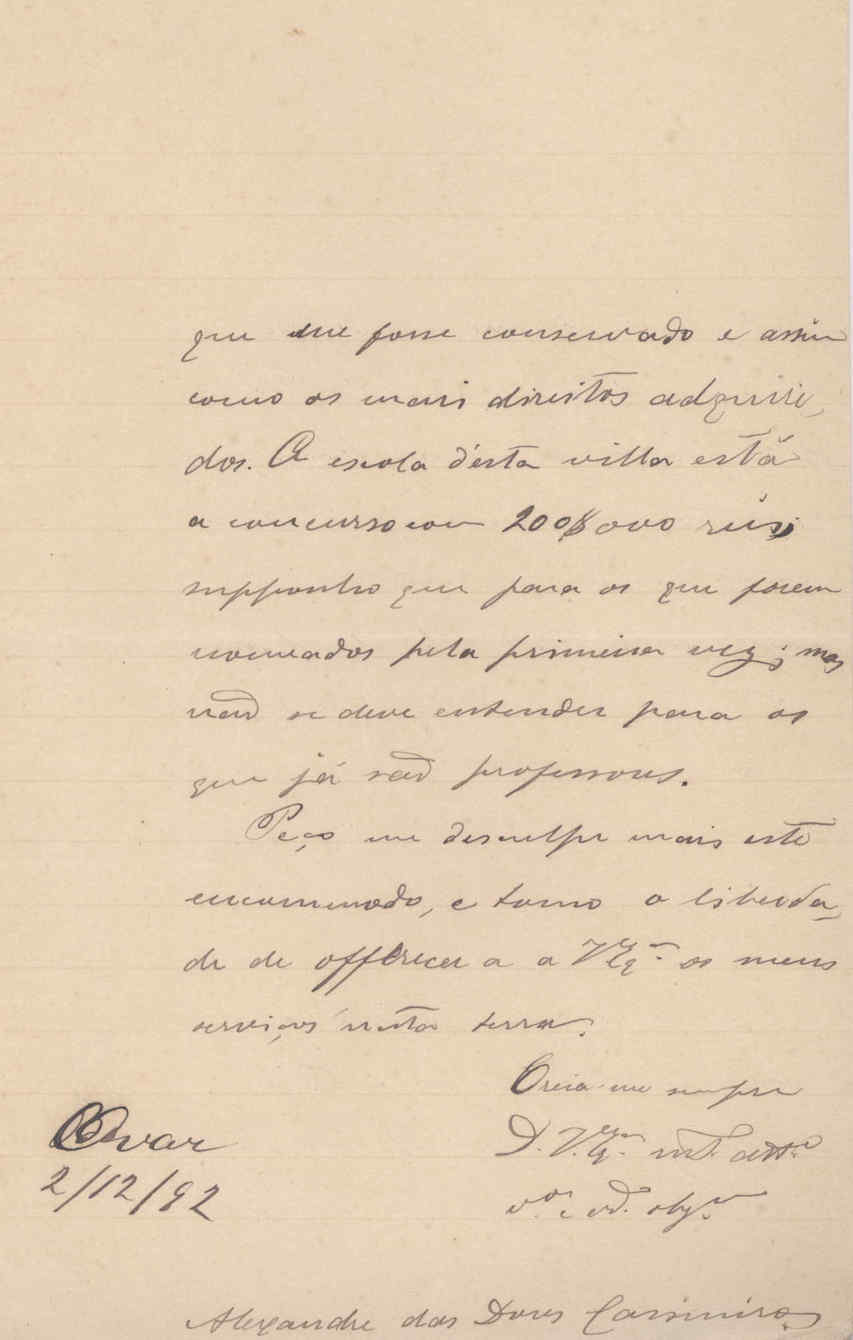 que me fosse conservado e assim
como os mais direitos adquiri-
dos. A escola d'esta villa está
a concurso com 200$000 réis;
supponho que para os que forem
nomeados pela primeira vez; mas
não se deve entender para os
que já são professores.
Peço me desculpe mais este
encommodo, e tomo a liberda-
de de offerecer a a V Exª os meus
serviços n'esta terra.
Creia-me sempre
D. V. Exª mt. attº
vor e cd. obgº
Ovar
2/12/92
Alexandre das Dores Casimiro